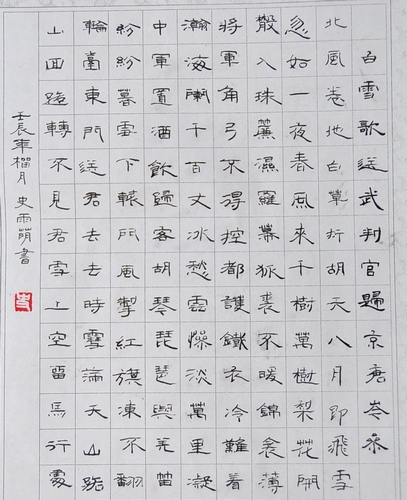 白雪歌送武判官歸京唐岑參
北風卷地白草折胡天八月即飛雪
忽如一夜春風來千樹萬樹梨花開
散入珠簾濕羅幕狐裘不暖錦衾薄
將軍角弓不得控都護鐵衣冷難着
瀚海闌干百丈冰愁雲慘淡萬里凝
中軍置酒飲歸客胡琴琵琶與羌笛
紛紛暮雪下轅門風掣紅旗凍不翻
輪臺東門送君去去時雪滿天山路
山回路轉不見君雪上空留馬行處
壬辰年榴月史雨萌書